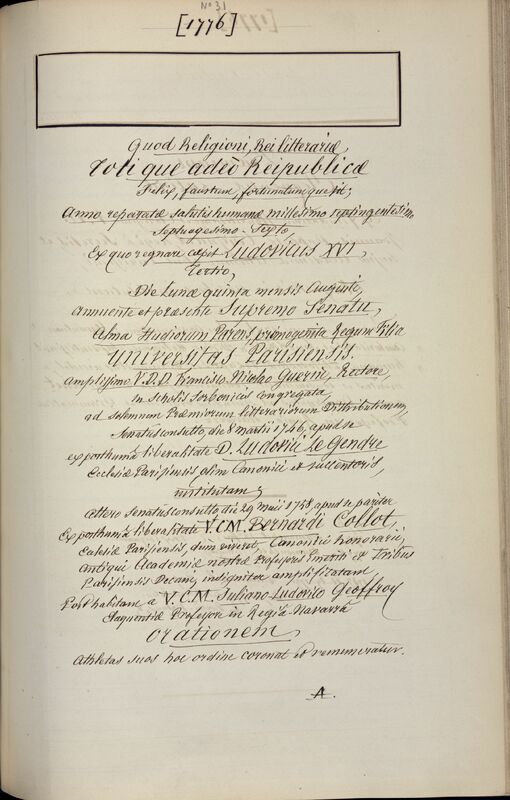 N° 31
[1776]
Quod Religioni, Rei litterariæ,
Toti que adeò Reipublicæ
Felix, faustum, fortunatumque sit;
Anno reparatæ salutis humanæ millesimo septingentesimo
Septuagesimo-Sexto
Ex quo regnare cœpit Ludovicus XVI,
Tertio,
Die Lunæ quinta mensis Augusti,
annuente et præsente Supremo Senatu,
Alma Studiorum Parens, primogenita Regum Filia
Universitas Parisiensis.
Amplissimo V.D.D. Francisco Nicolao Guerin, Rectore,
in Scholis Sorbonicis congregata,
ad Solemnem Præmiorum litterariorum Distributionem,
Senatusconsulto, die 8 Martii 1746, apud se
ex posthumâ liberalitate D. Ludovici Le Gendre
Ecclesiæ Parisiensis olim Canonici et succentoris,
institutam;
altero Senatusconsulto, die 29 Maii 1758, apud se pariter
Ex posthumâ liberalitate V.C.M. Bernardi Collot,
Ecclesiæ Parisiensis, dum viveret, Canonici honorarii,
antiqui Academiæ nostræ Professoris Emeriti et Tribus
Parisiensis Decani, insigniter amplificatam
Post habitam a V.C.M. Juliano-Ludovico Geoffroy
Eloquentiæ Professore in Regiâ-Navarrâ
orationem,
Athletas suos hoc ordine coronat et remuneratur.
A.